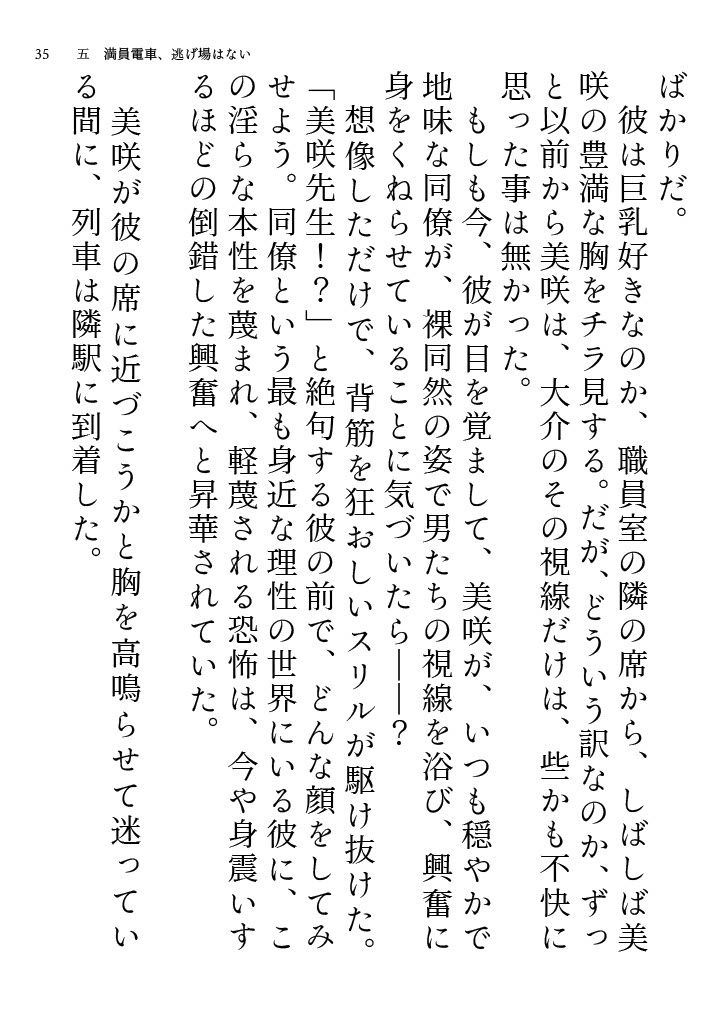 35　五　満員電車、逃げ場はない
ばかりだ。
　彼は巨乳好きなのか、職員室の隣の席から、しばしば美
咲の豊満な胸をチラ見する。だが、どういう訳なのか、ずっ
と以前から美咲は、大介のその視線だけは、些かも不快に
思った事は無かった。
　もしも今、彼が目を覚まして、美咲が、いつも穏やかで
地味な同僚が、裸同然の姿で男たちの視線を浴び、興奮に
身をくねらせていることに気づいたら――？
　想像しただけで、背筋を狂おしいスリルが駆け抜けた。
「美咲先生！？」と絶句する彼の前で、どんな顔をしてみ
せよう。同僚という最も身近な理性の世界にいる彼に、こ
の淫らな本性を蔑まれ、軽蔑される恐怖は、今や身震いす
るほどの倒錯した興奮へと昇華されていた。
　美咲が彼の席に近づこうかと胸を高鳴らせて迷ってい
る間に、列車は隣駅に到着した。